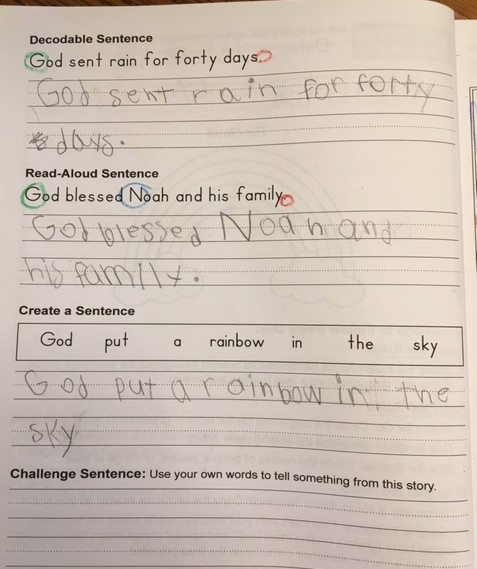 Decodable Sentence
God sent rain for forty days.
God sent rain for forty
days.
Read-Aloud Sentence
God blessed Noah and his family.
God blessed Noah and
his family.
Create a Sentence
God put a rainbow in the sky
God put a rainbow in the
sky
Challenge Sentence: Use your own words to tell something from this story.